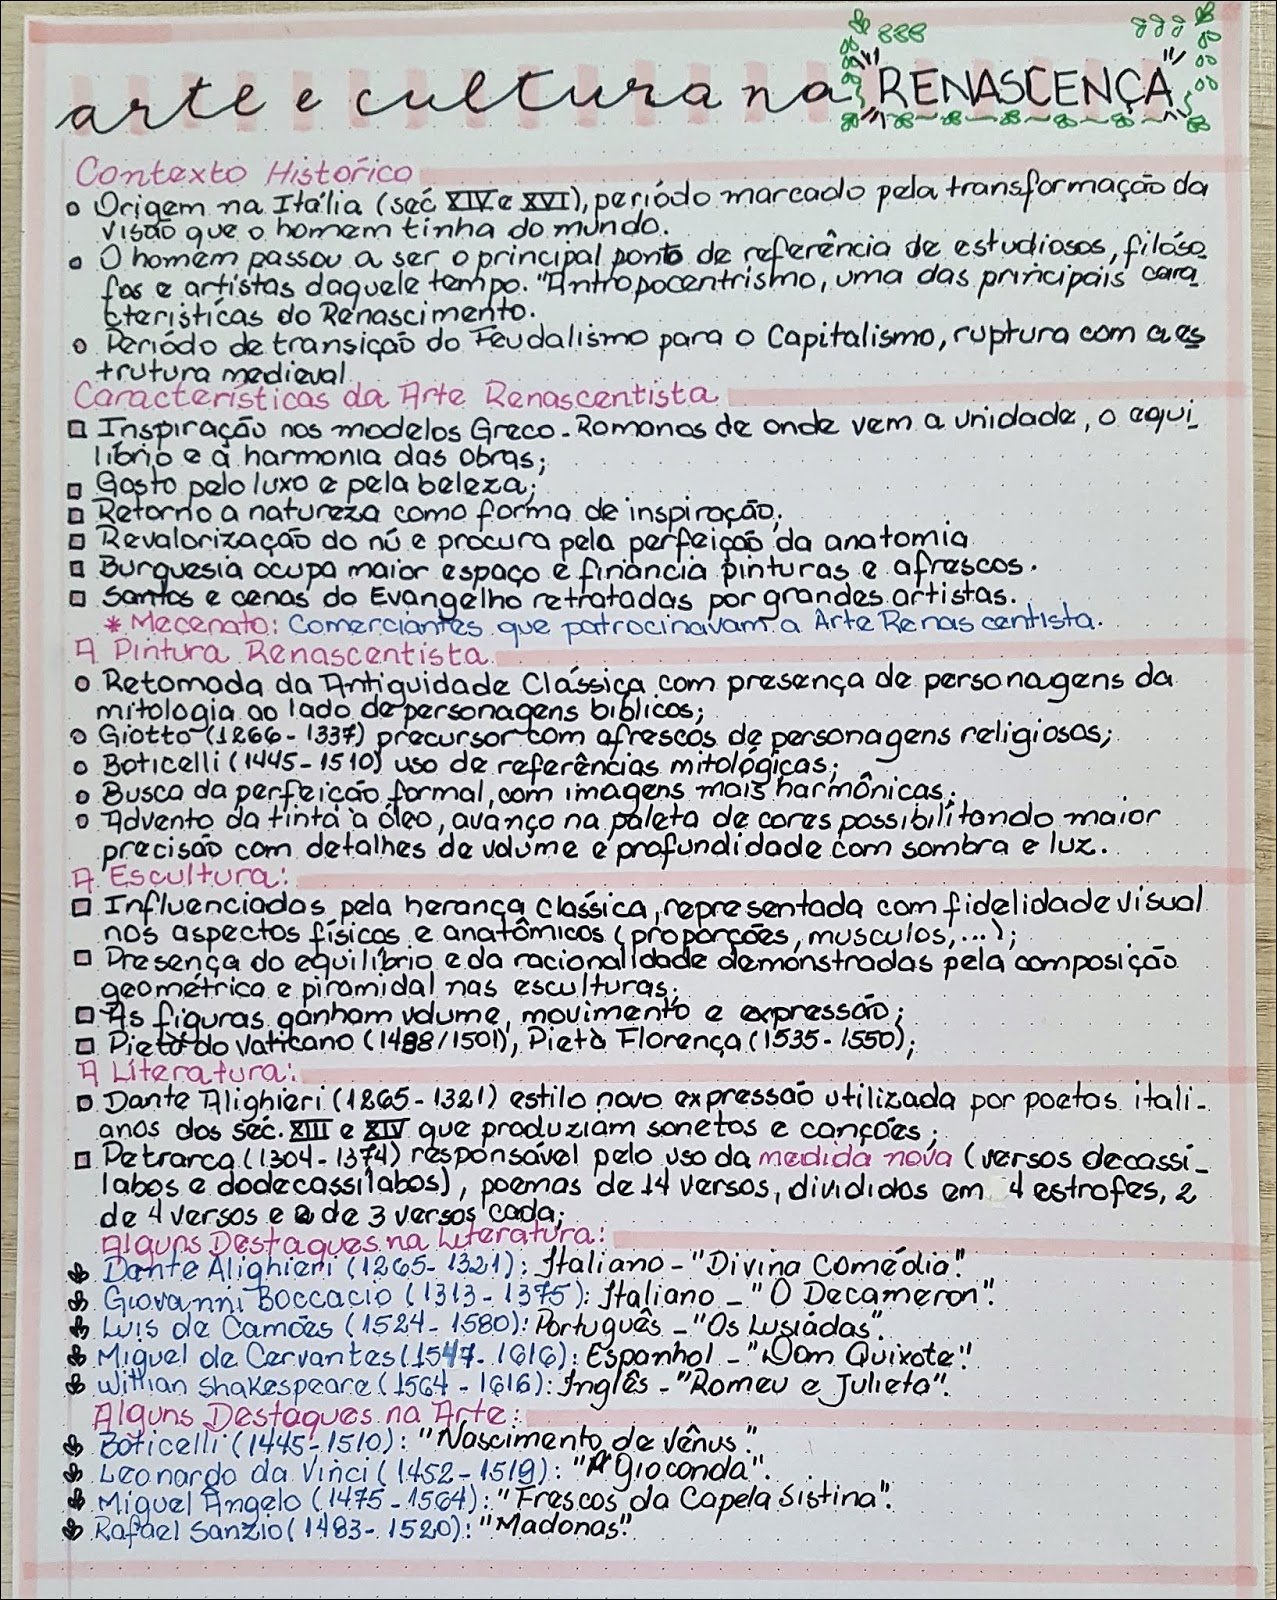 arte e cultura na RENASCENÇA
Contexto Histórico
Origem na Itália (séc XIV e XVI), período marcado pela transformação da
visão que o homem tinha do mundo.
O homem passou a ser o principal ponto de referência de estudiosos, filóso
fos e artistas daquele tempo. "Antropocentrismo, uma das principais cara
cterísticas do Renascimento.
Período de transição do Feudalismo para o Capitalismo, ruptura com a es
trutura medieval
Características da Arte Renascentista
Inspiração nos modelos Greco-Romanos de onde vem a unidade, o equi_
líbrio e a harmonia das obras;
Gosto pelo luxo e pela beleza;
Retorno a natureza como forma de inspiração;
Revalorização do nú e procura pela perfeição da anatomia
Burguesia ocupa maior espaço e financia pinturas e afrescos.
Santos e cenas do Evangelho retratadas por grandes artistas.
* Mecenato: Comerciantes que patrocinavam a Arte Renascentista.
A Pintura Renascentista
Retomada da Antiguidade Clássica com presença de personagens da
mitologia ao lado de personagens bíblicos;
Giotto (1266-1337) precursor com afrescos de personagens religiosos;
Boticelli (1445-1510) uso de referências mitológicas;
Busca da perfeição formal, com imagens mais harmônicas;
Advento da tinta à óleo, avanço na paleta de cores possibilitando maior
precisão com detalhes de volume e profundidade com sombra e luz.
A Escultura:
Influenciadas pela herança clássica, representada com fidelidade visual
nos aspectos físicos e anatômicos (proporções, musculos,...);
Presença do equilíbrio e da racionalidade demonstradas pela composição
geométrica e piramidal nas esculturas;
As figuras ganham volume, movimento e expressão;
Pietà do Vaticano (1498/1501), Pietà Florença (1535-1550);
A Literatura:
Dante Alighieri (1265-1321) estilo novo expressão utilizada por poetas itali-
anos dos séc. XIII e XIV que produziam sonetos e canções;
Petrarca (1304-1374) responsável pelo uso da medida nova (versos decassi_
labos e dodecassílabos), poemas de 14 versos, divididos em 4 estrofes, 2
de 4 versos e 2 de 3 versos cada;
Alguns Destaques na Literatura:
Dante Alighieri (1265-1321): Italiano - "Divina Comédia".
Giovanni Boccacio (1313-1375): Italiano - "O Decameron".
Luís de Camões (1524-1580): Português - "Os Lusíadas".
Miguel de Cervantes (1547-1616): Espanhol - "Dom Quixote".
Willian Shakespeare (1564-1616): Inglês - "Romeu e Julieta".
Alguns Destaques na Arte:
Boticelli (1445-1510): "Nascimento de Vênus".
Leonardo da Vinci (1452-1519): "A Gioconda".
Miguel Ângelo (1475-1564): "Frescos da Capela Sistina".
Rafael Sanzio (1483-1520): "Madonas".